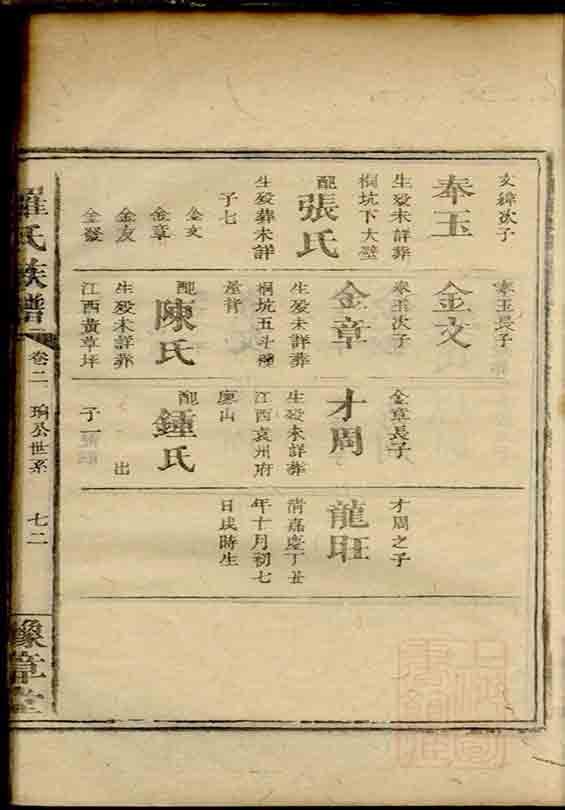 文緯次子
奉玉
生殁未詳葬
桐坑下大壁
配張氏
生殁葬未詳
子七
金文
金章
金友
金發
奉玉長子
金文
奉玉次子
金章
生殁未詳葬
桐坑五斗種
屋背
配陳氏
生殁未詳葬
江西黄草坪
金章長子
才周
生殁未詳葬
江西袁州府
山
配鍾氏
出
子一
才周之子
龍旺
清嘉慶丁丑
年十月初七
日戌時生
羅氏族譜
卷二
公世系
七二
豫章堂